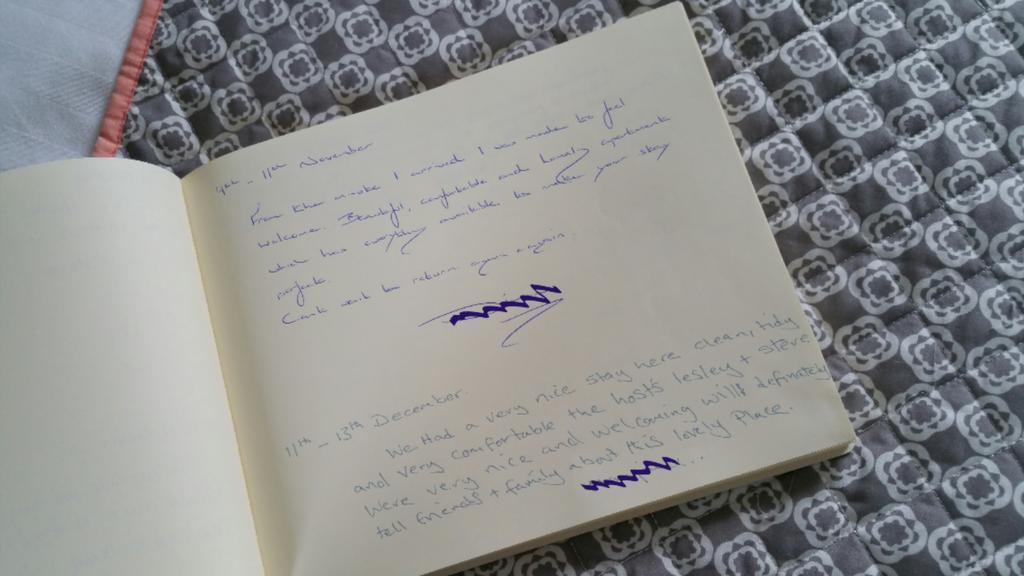 9th - 11th November
From the minute I arrived I was made to feel
welcome. Beautiful, comfortable and homely apartment
which has everything available to make your stay
perfect.
Cant wait to return again & again.
11th - 13th December.
We Had a very nice stay here clean, tidy
and very comfortable the hosts lesley + steve
were very nice and welcoming will definately
tell friends + family about this lovely place.